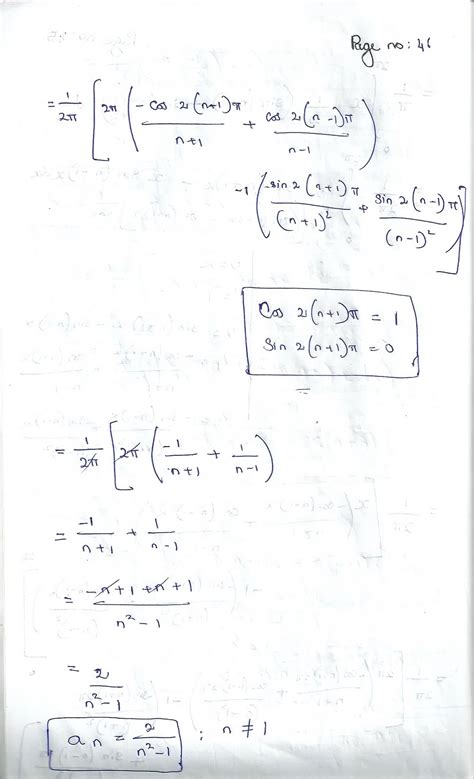 Page no: 46
= 1/2π [ 2π ( -cos 2(n+1)π / n+1 + cos 2(n-1)π / n-1 )
-1 ( -sin 2(n+1)π / (n+1)² + sin 2(n-1)π / (n-1)² ) ]
Cos 2(n+1)π = 1
Sin 2(n+1)π = 0
= 1/2π [ 2π ( -1/n+1 + 1/n-1 )
= -1/n+1 + 1/n-1
= -n+1+n+1 / n²-1
= 2/n²-1
an = 2/n²-1 ; n ≠ 1